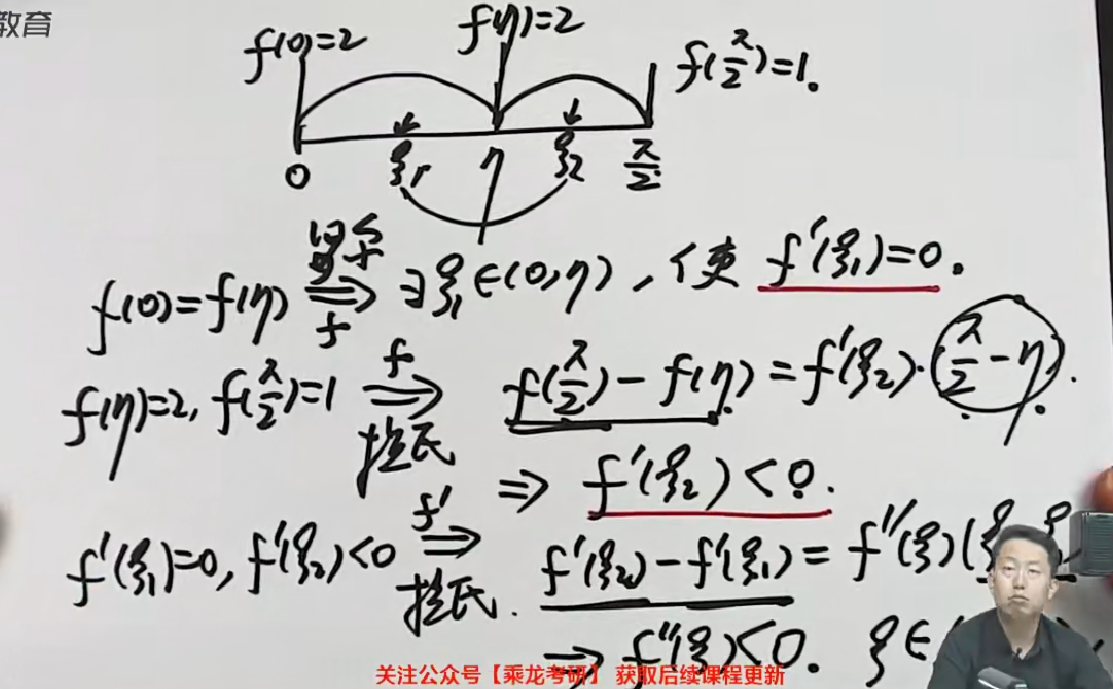 教育
f(0)=2
f(η)=2
f(π/2)=1.
0 ξ₁ η ξ₂ π/2
f(0)=f(η) ⇒ ∃ξ₁∈(0,η), 使 f'(ξ₁)=0.
罗尔
f
f(η)=2, f(π/2)=1 ⇒ f(π/2)-f(η)=f'(ξ₂)·(π/2-η).
f
拉氏
⇒ f'(ξ₂)<0.
f'(ξ₁)=0, f'(ξ₂)<0 ⇒ f'(ξ₂)-f'(ξ₁)=f''(ξ)(
f'
拉氏.
⇒ f''(ξ)<0. ξ∈
关注公众号【乘龙考研】 获取后续课程更新